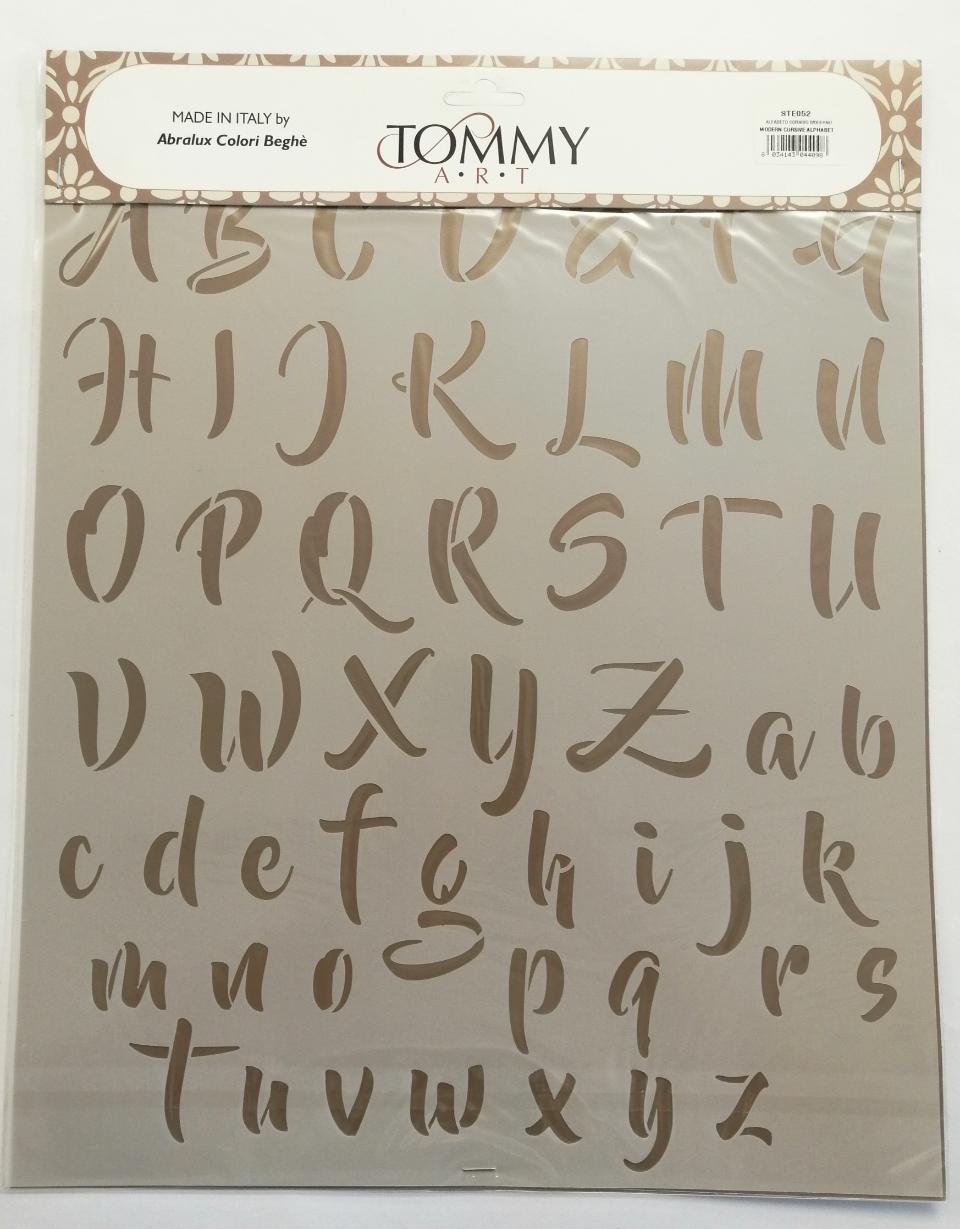 MADE IN ITALY by
Abralux Colori Beghè
TOMMY
A·R·T
STE052
ALFABETO CORSIVO MODERNO
MODERN CURSIVE ALPHABET
8 034143 044098
A B C D E F G
H I J K L M N
O P Q R S T U
V W X Y Z a b
c d e f g h i j k
m n o p q r s
t u v w x y z